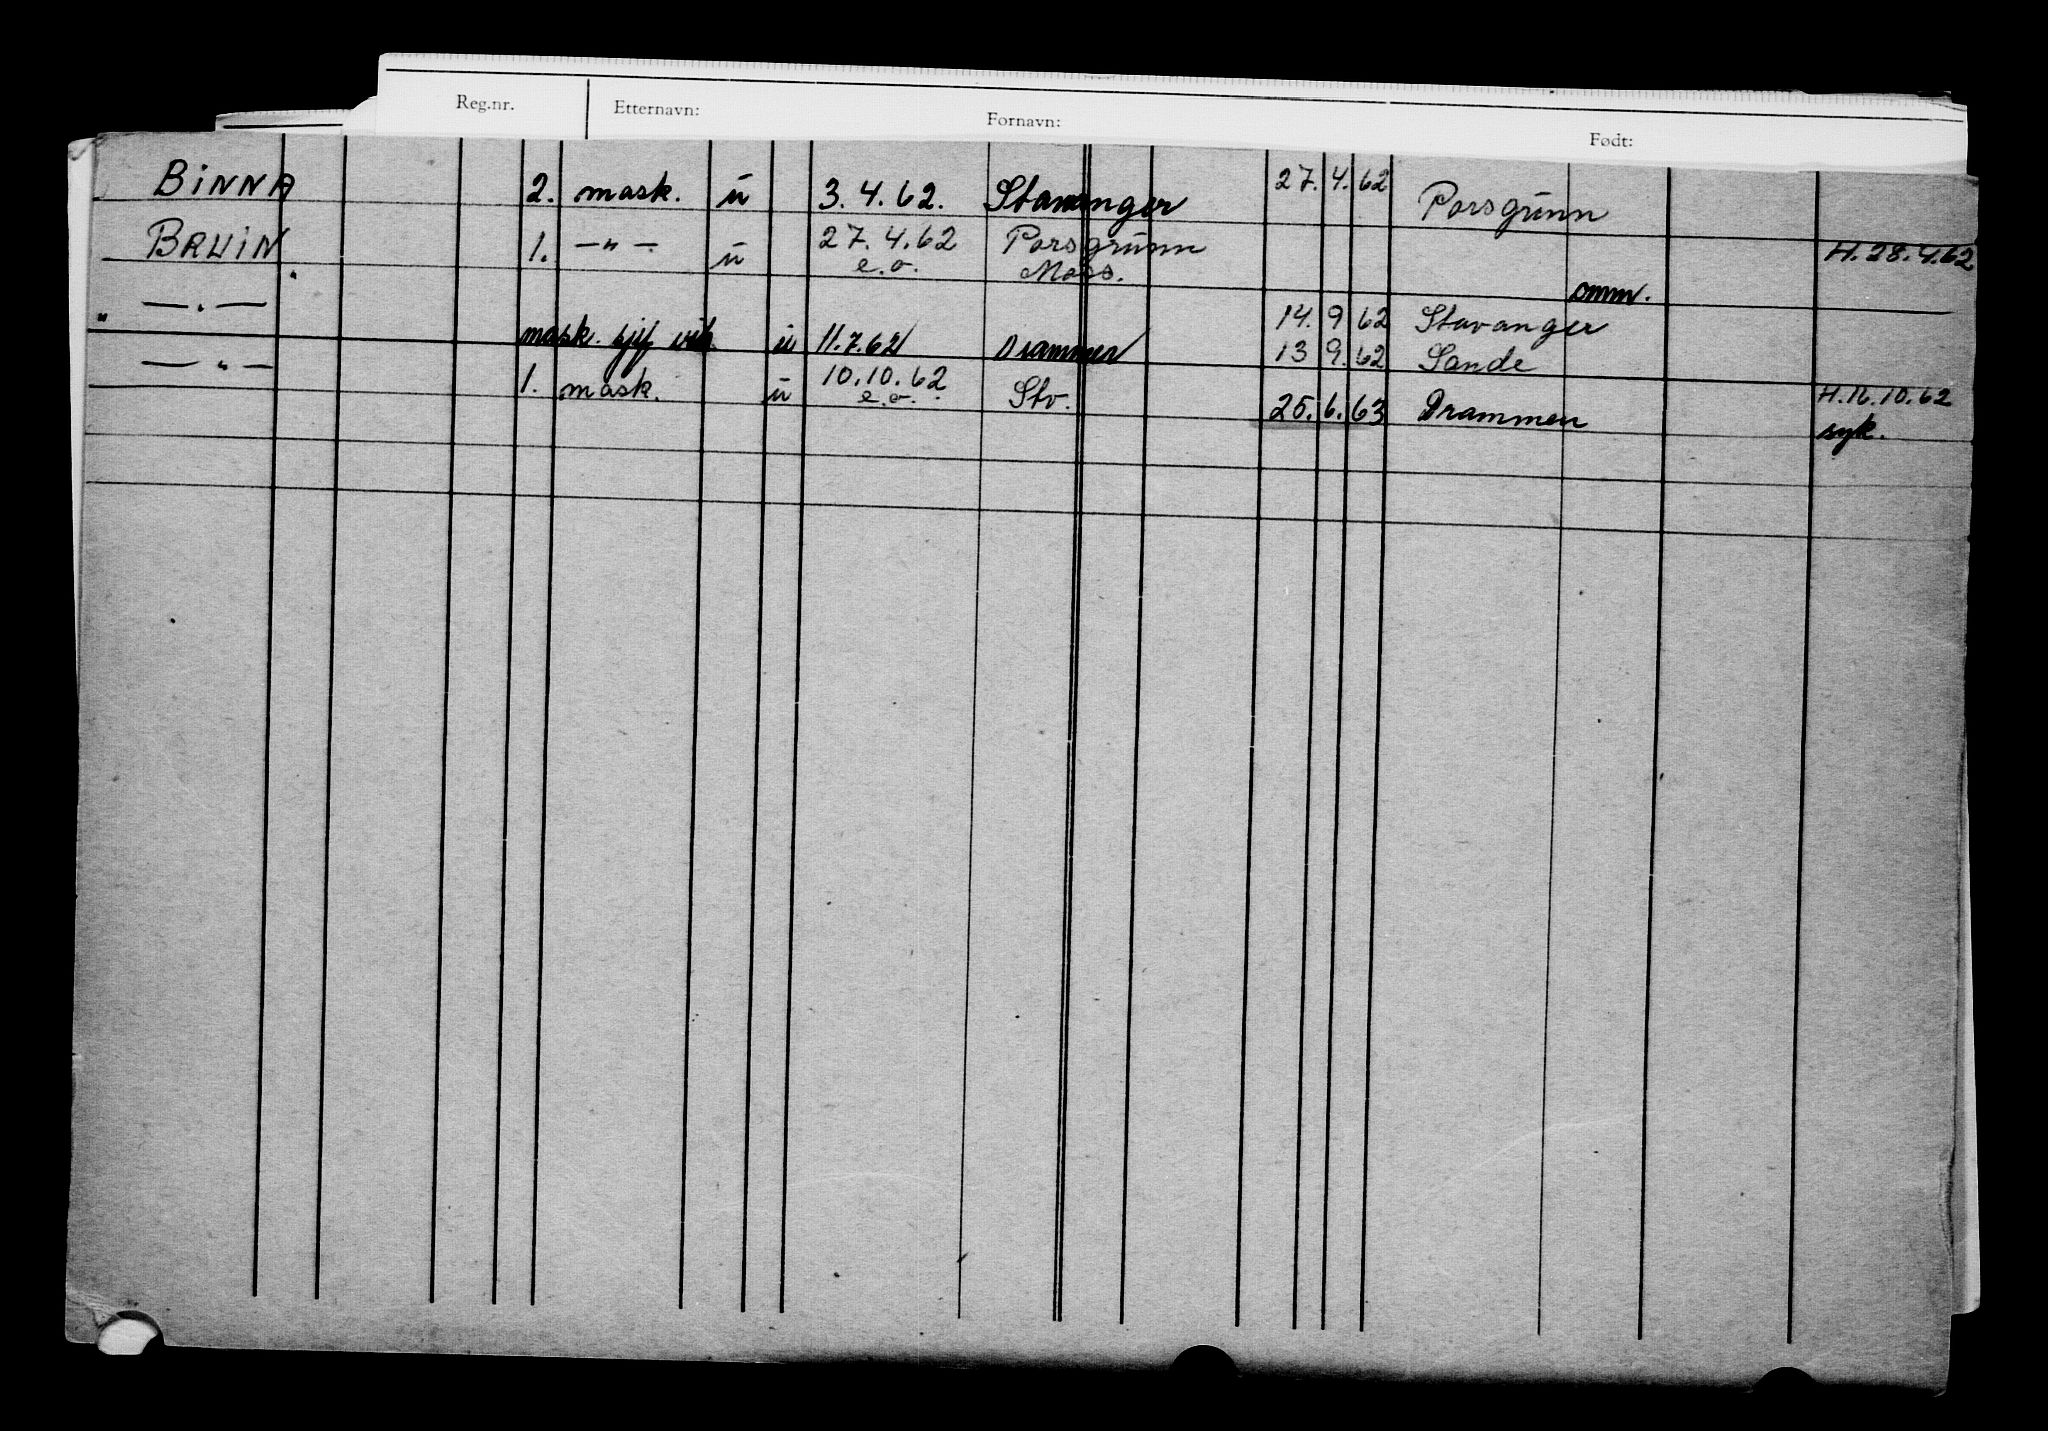 Reg.nr. Etternavn: Fornavn: Født:
BINNA 2. mask. u 3.4.62. Stavanger 27. 4. 62 Porsgrunn
BRUIN 1. —"— u 27.4.62 Porsgrunn H. 28.4.62
e.o. Moss.
—"— omm.
14. 9 62 Stavanger
" mask. sjef vik. u 11.7.62 Drammen 13 9. 62 Sande
—"— 1. mask. u 10.10.62 Stv. H. 12.10.62
e.o. 25. 6. 63 Drammen syk.